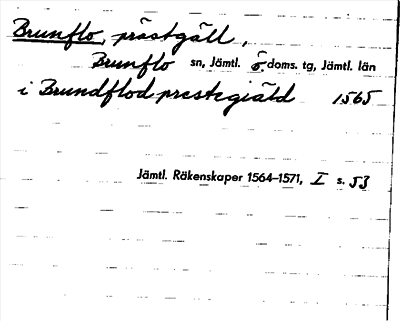 Brunflo, prästgäll,
Brunflo sn, Jämtl. ö. doms. tg, Jämtl. län
i Brundflod prestegiäld 1565
Jämtl. Räkenskaper 1564–1571, I s. 53